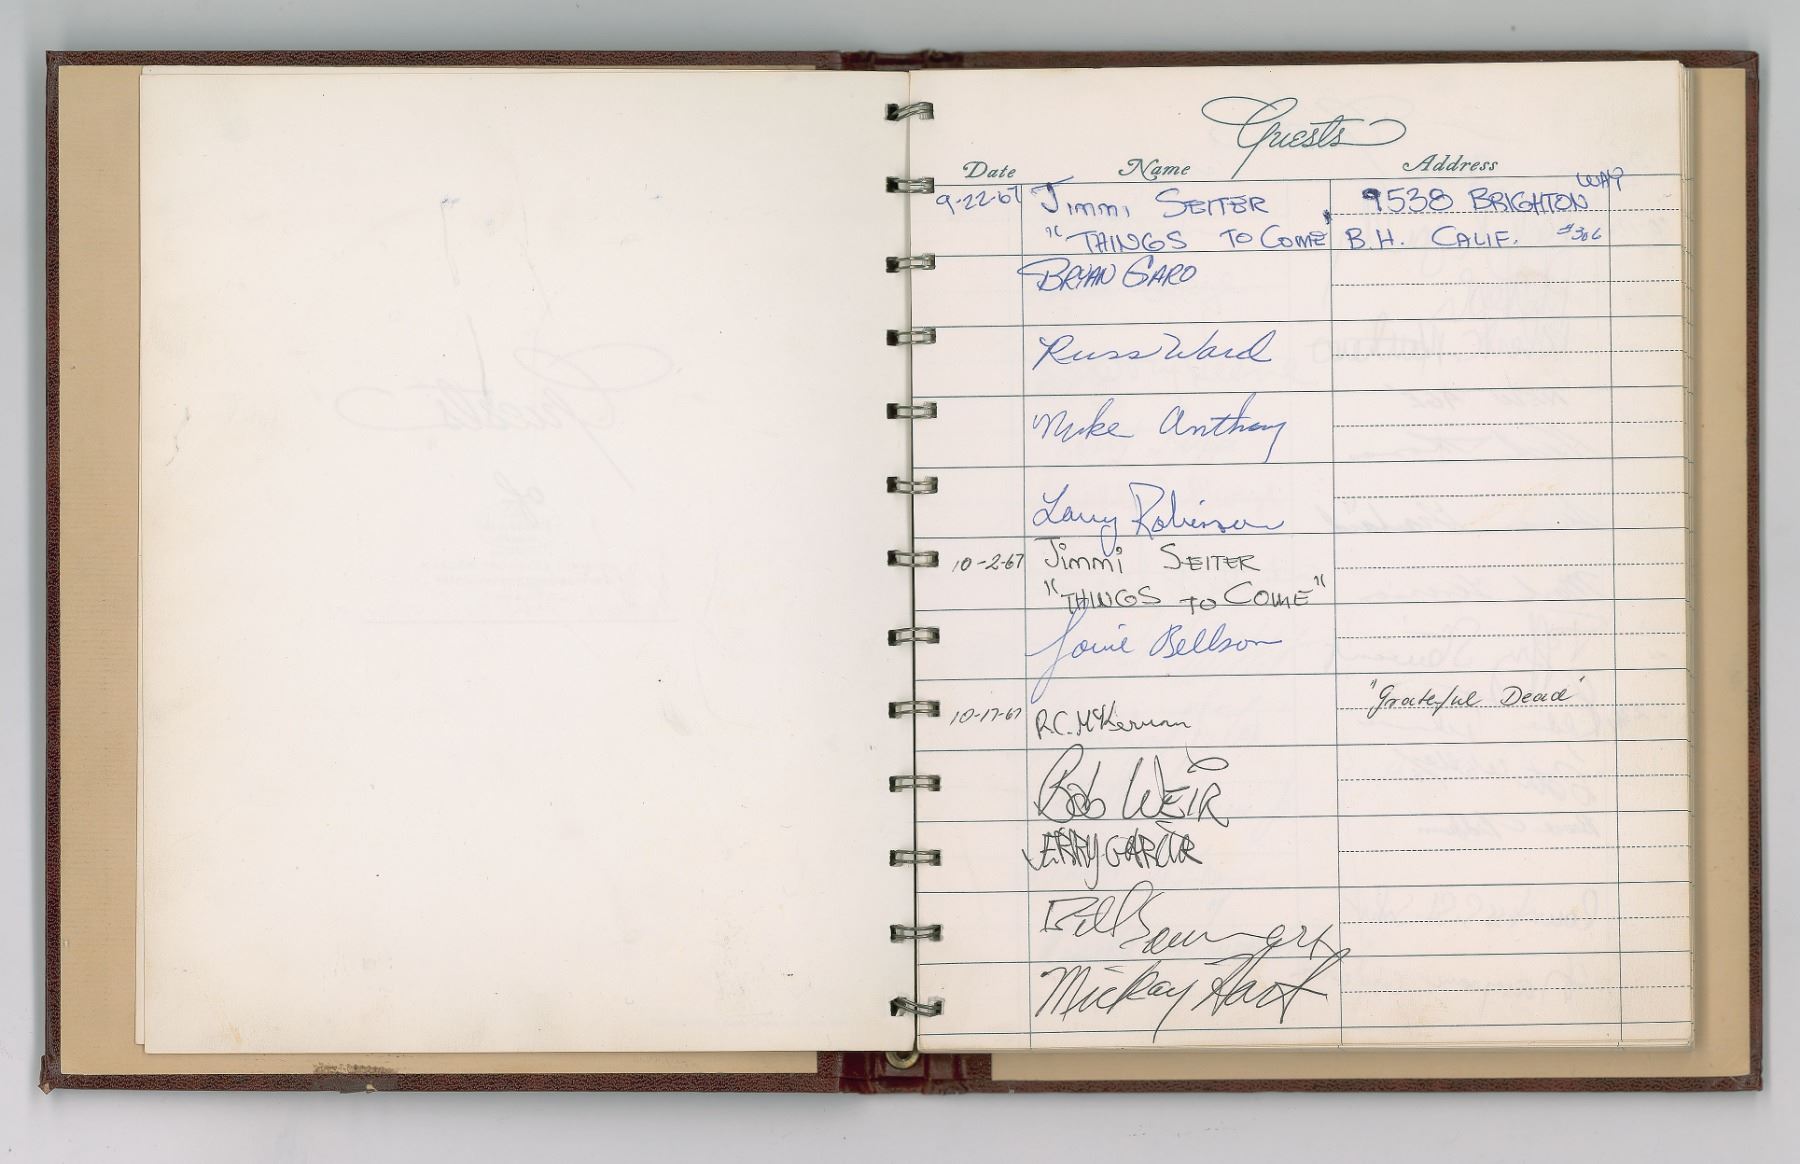 Guests
Date Name Address
9-22-67 Jimmi SEITER 9538 BRIGHTON WAY
"THINGS TO COME B.H. CALIF. #306
BRYAN GARO
Russ Ward
Mike Anthony
Larry Robinson
10-2-67 Jimmi SEITER
"THINGS TO COME"
Louie Bellson
"Grateful Dead"
10-17-67 R.C. McKernan
Bob WEIR
JERRY GARCIA
Bill
Mickey Hart